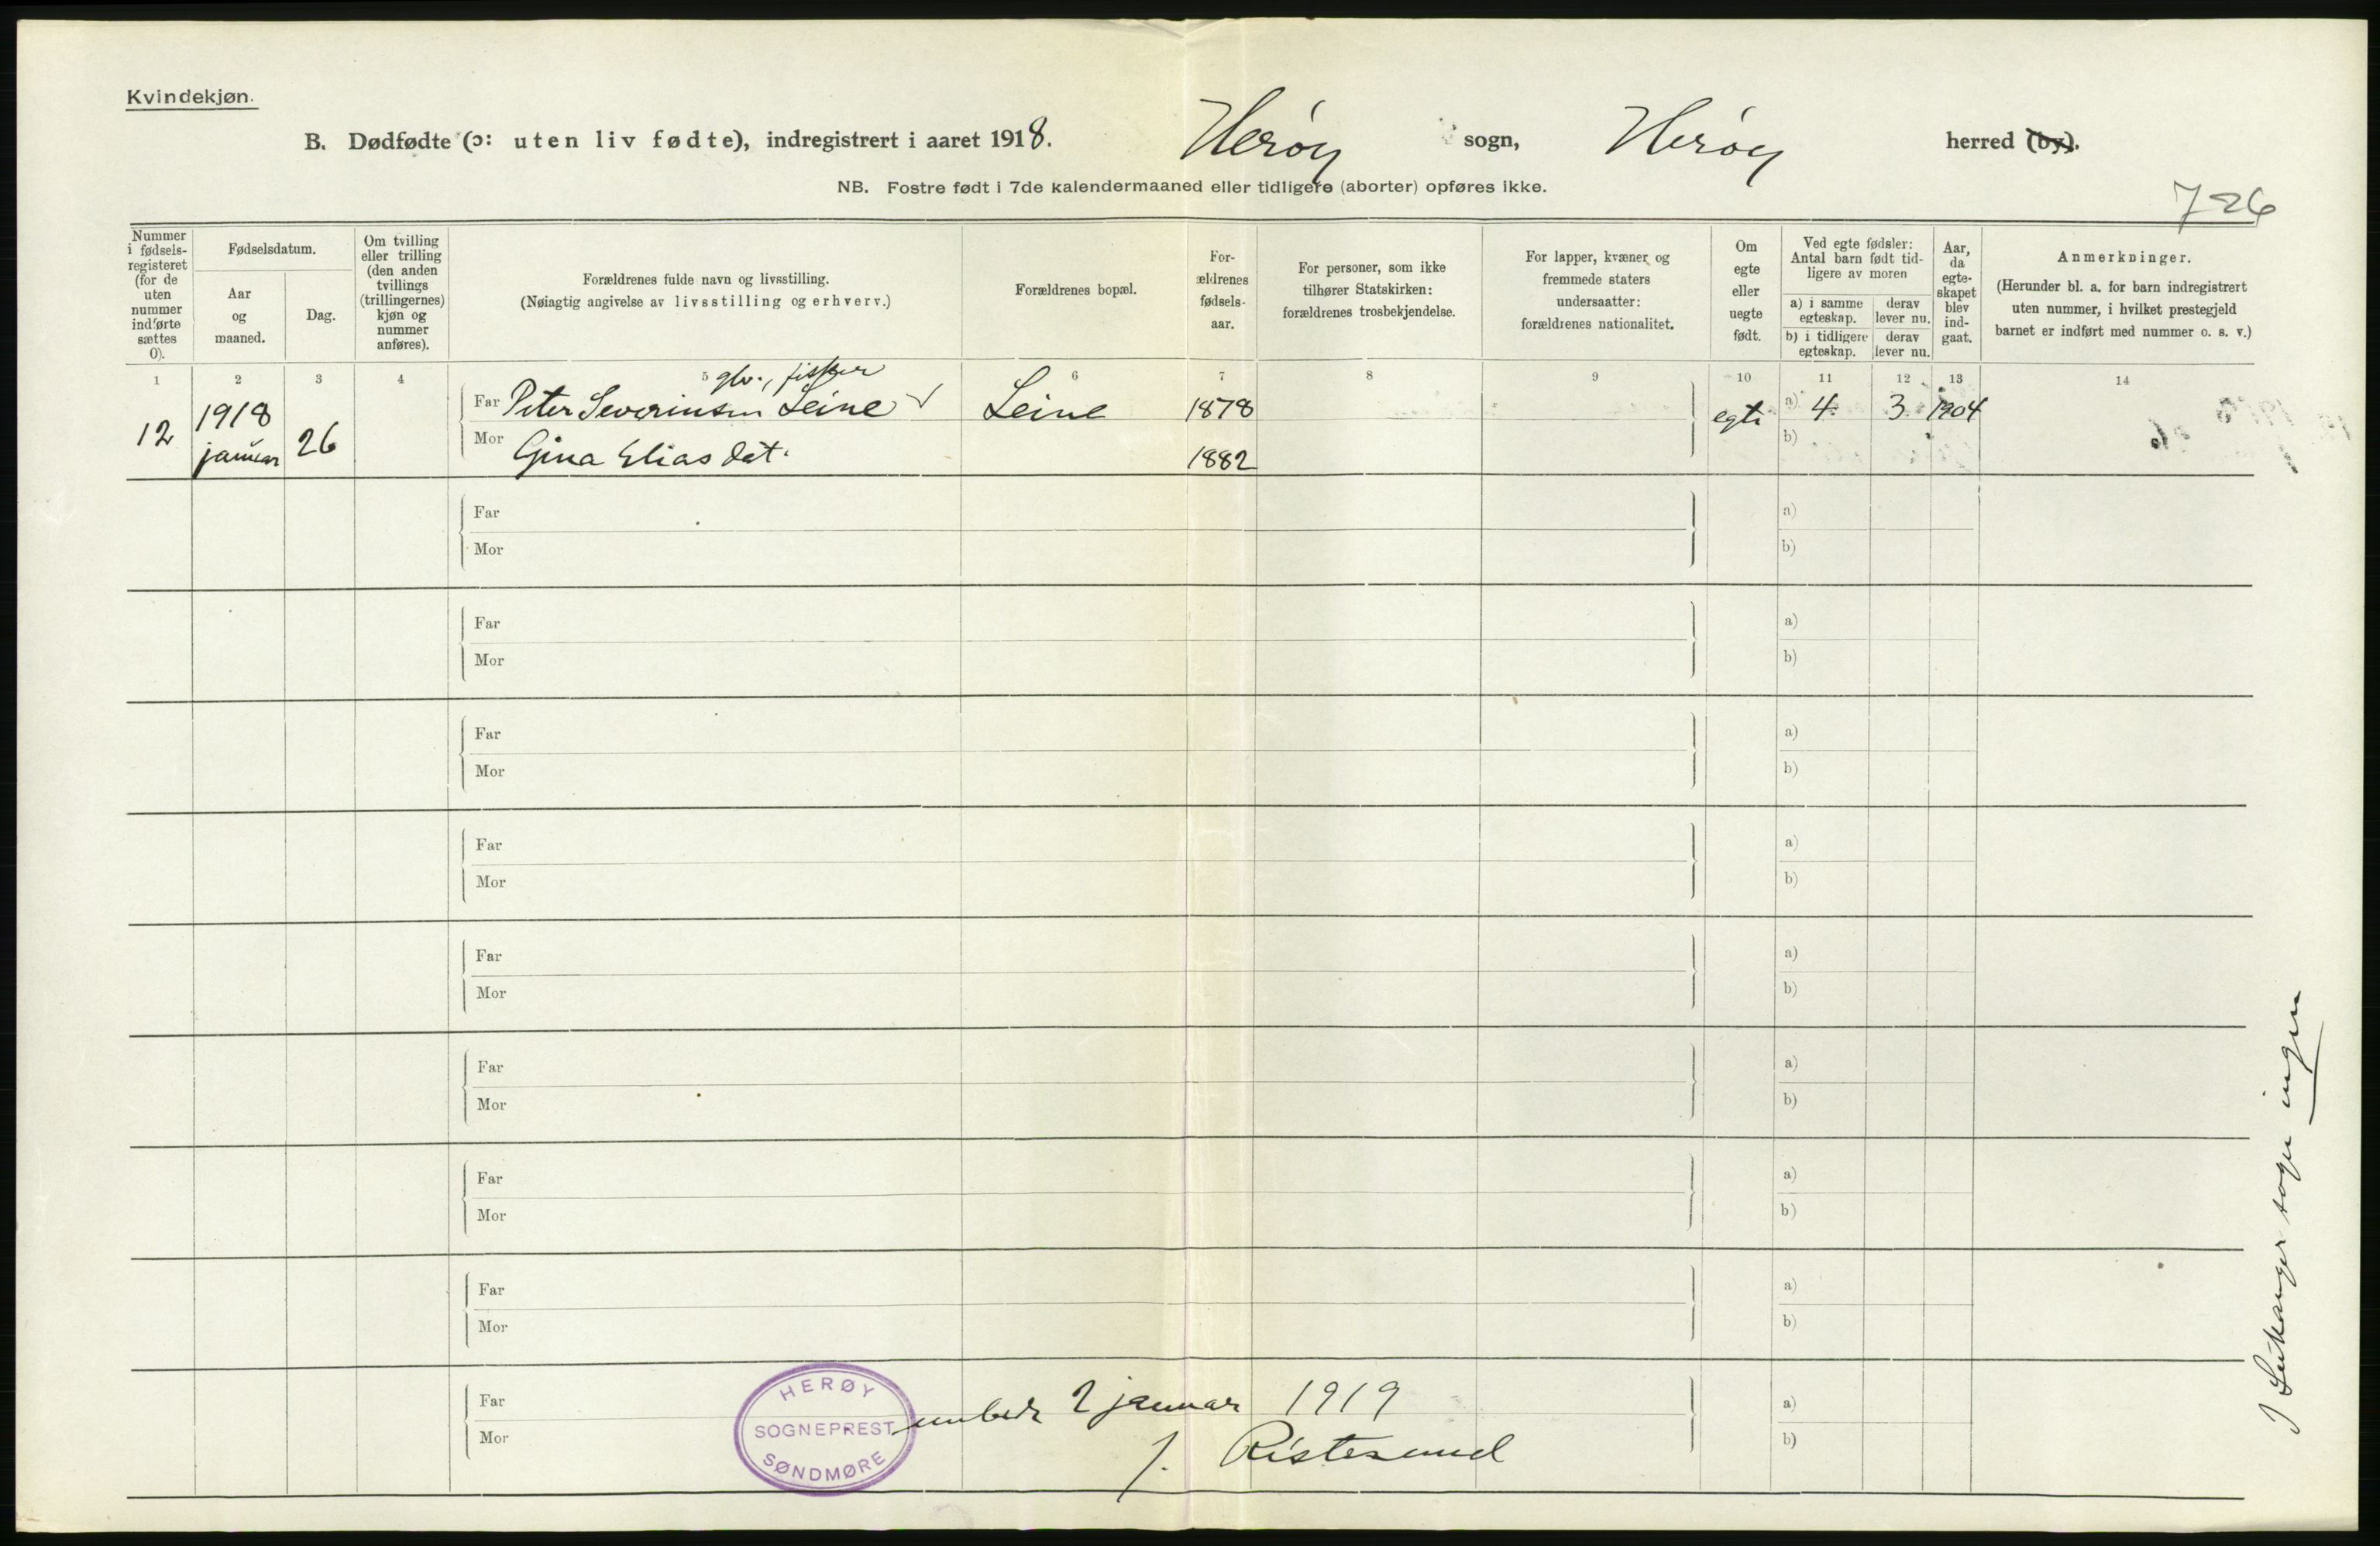 Kvindekjøn.
B. Dødfødte (ɔ: uten liv fødte), indregistrert i aaret 1918. Herøy sogn, Herøy herred (by).
NB. Fostre født i 7de kalendermaaned eller tidligere (aborter) opføres ikke.
726
Nummer i fødsels-registeret (for de uten nummer indførte sættes 0).
Fødselsdatum.
Aar og maaned.
Dag.
Om tvilling eller trilling (den anden tvillings (trillingernes) kjøn og nummer anføres).
Forældrenes fulde navn og livsstilling.
(Nøiagtig angivelse av livsstilling og erhverv.)
Forældrenes bopæl.
For-ældrenes fødsels-aar.
For personer, som ikke tilhører Statskirken: forældrenes trosbekjendelse.
For lapper, kvæner og fremmede staters undersaatter: forældrenes nationalitet.
Om egte eller uegte født.
Ved egte fødsler: Antal barn født tid-ligere av moren
a) i samme egteskap.
derav lever nu.
b) i tidligere egteskap.
derav lever nu.
Aar, da egte-skapet blev ind-gaat.
Anmerkninger.
(Herunder bl. a. for barn indregistrert uten nummer, i hvilket prestegjeld barnet er indført med nummer o. s. v.)
1 2 3 4 5 6 7 8 9 10 11 12 13 14
gbr., fisker
12 1918 januar 26 Far Peter Severinsen Leine Leine 1878 egte a) 4 3 1904
Mor Gina Eliasdat. 1882 b)
Far a)
Mor b)
Far a)
Mor b)
Far a)
Mor b)
Far a)
Mor b)
Far a)
Mor b)
Far a)
Mor b)
Far a)
Mor b)
Far a)
Mor b)
Far a)
Mor b)
HERØY
SOGNEPREST
SØNDMØRE
embede 2 januar 1919
J. Ristesund
I Leikanger sogn ingen